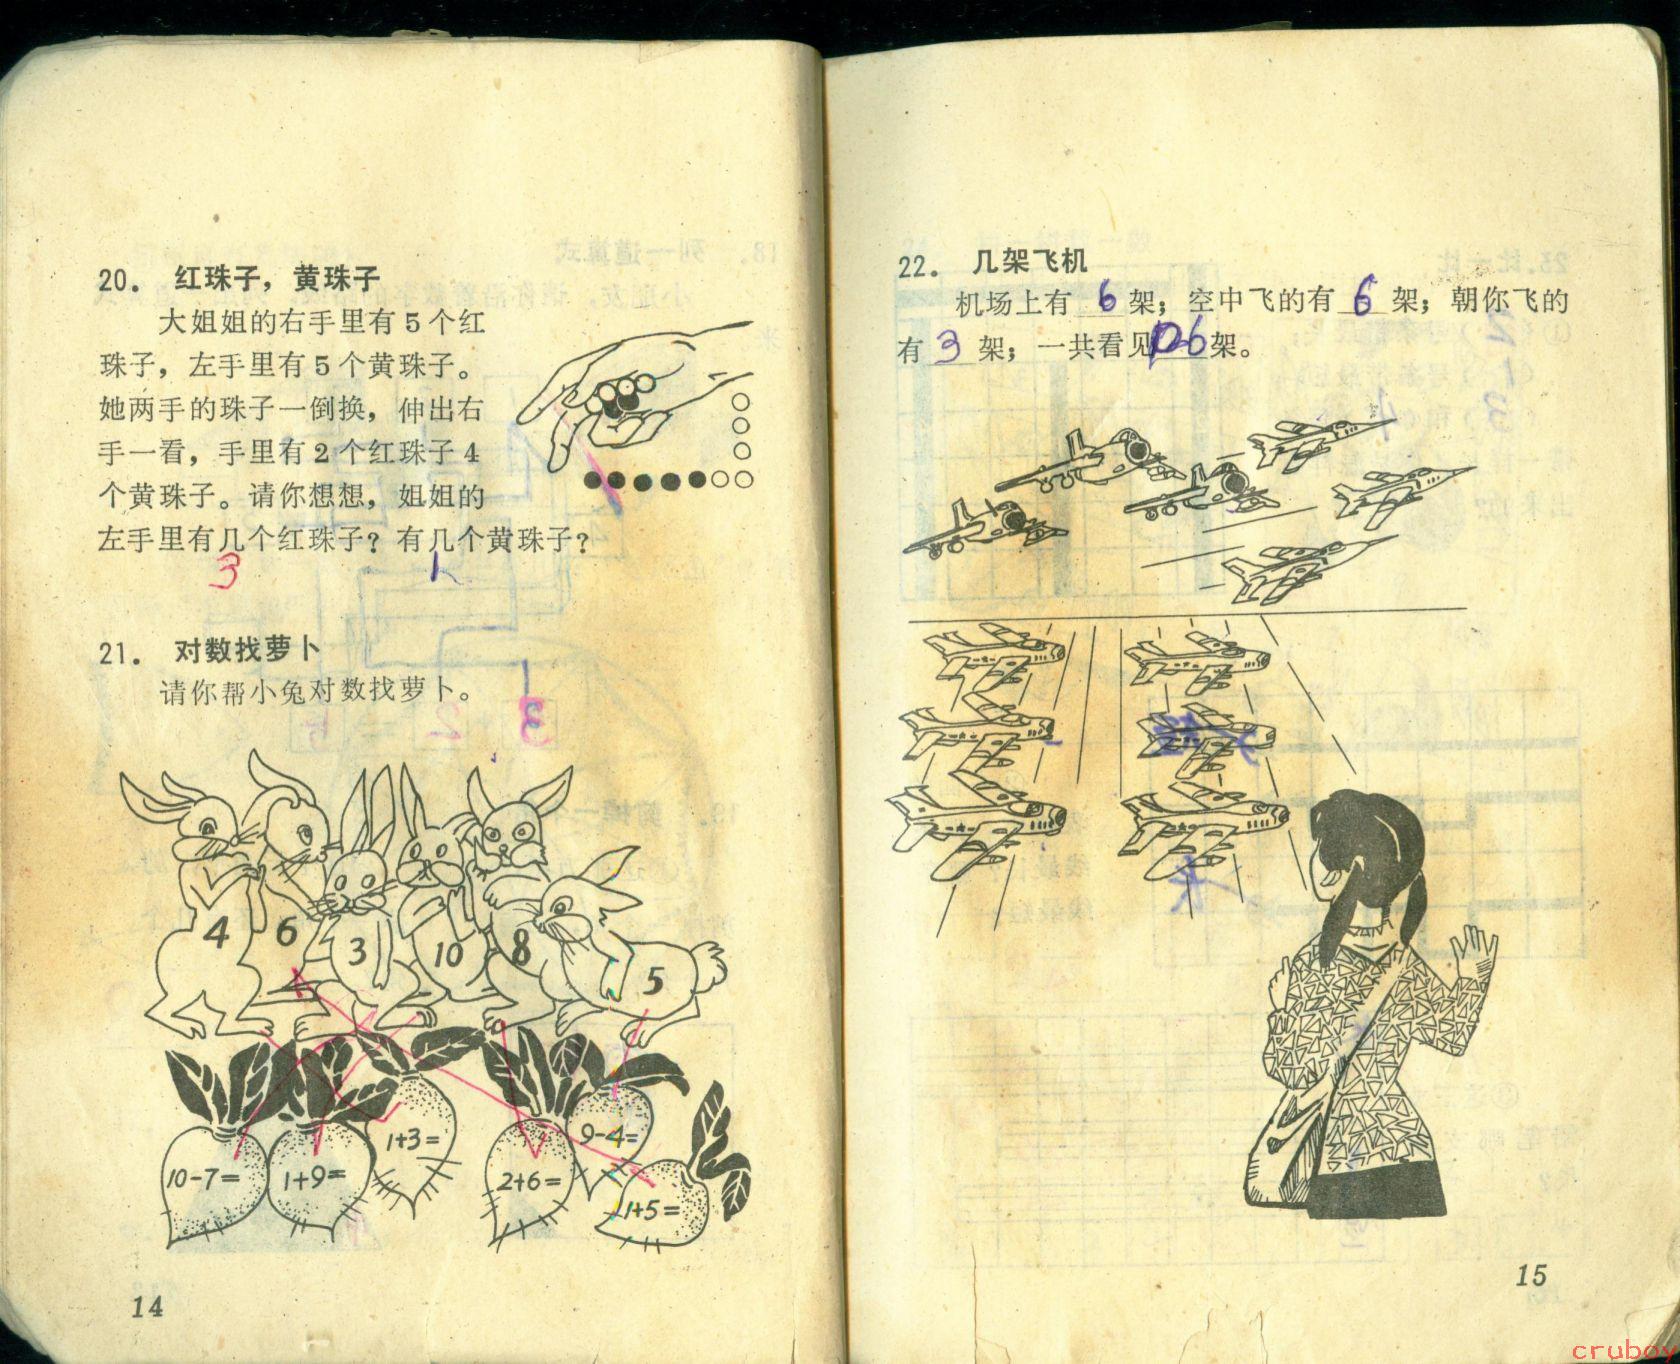 20. 红珠子，黄珠子
大姐姐的右手里有5个红
珠子，左手里有5个黄珠子。
她两手的珠子一倒换，伸出右
手一看，手里有2个红珠子4
个黄珠子。请你想想，姐姐的
左手里有几个红珠子？有几个黄珠子？
3 1
21. 对数找萝卜
请你帮小兔对数找萝卜。
4 6 3 10 8 5
1+3=
9-4=
10-7= 1+9= 2+6=
1+5=
14
22. 几架飞机
机场上有 6 架；空中飞的有 6 架；朝你飞的
有 3 架；一共看见 架。
15
cruboy